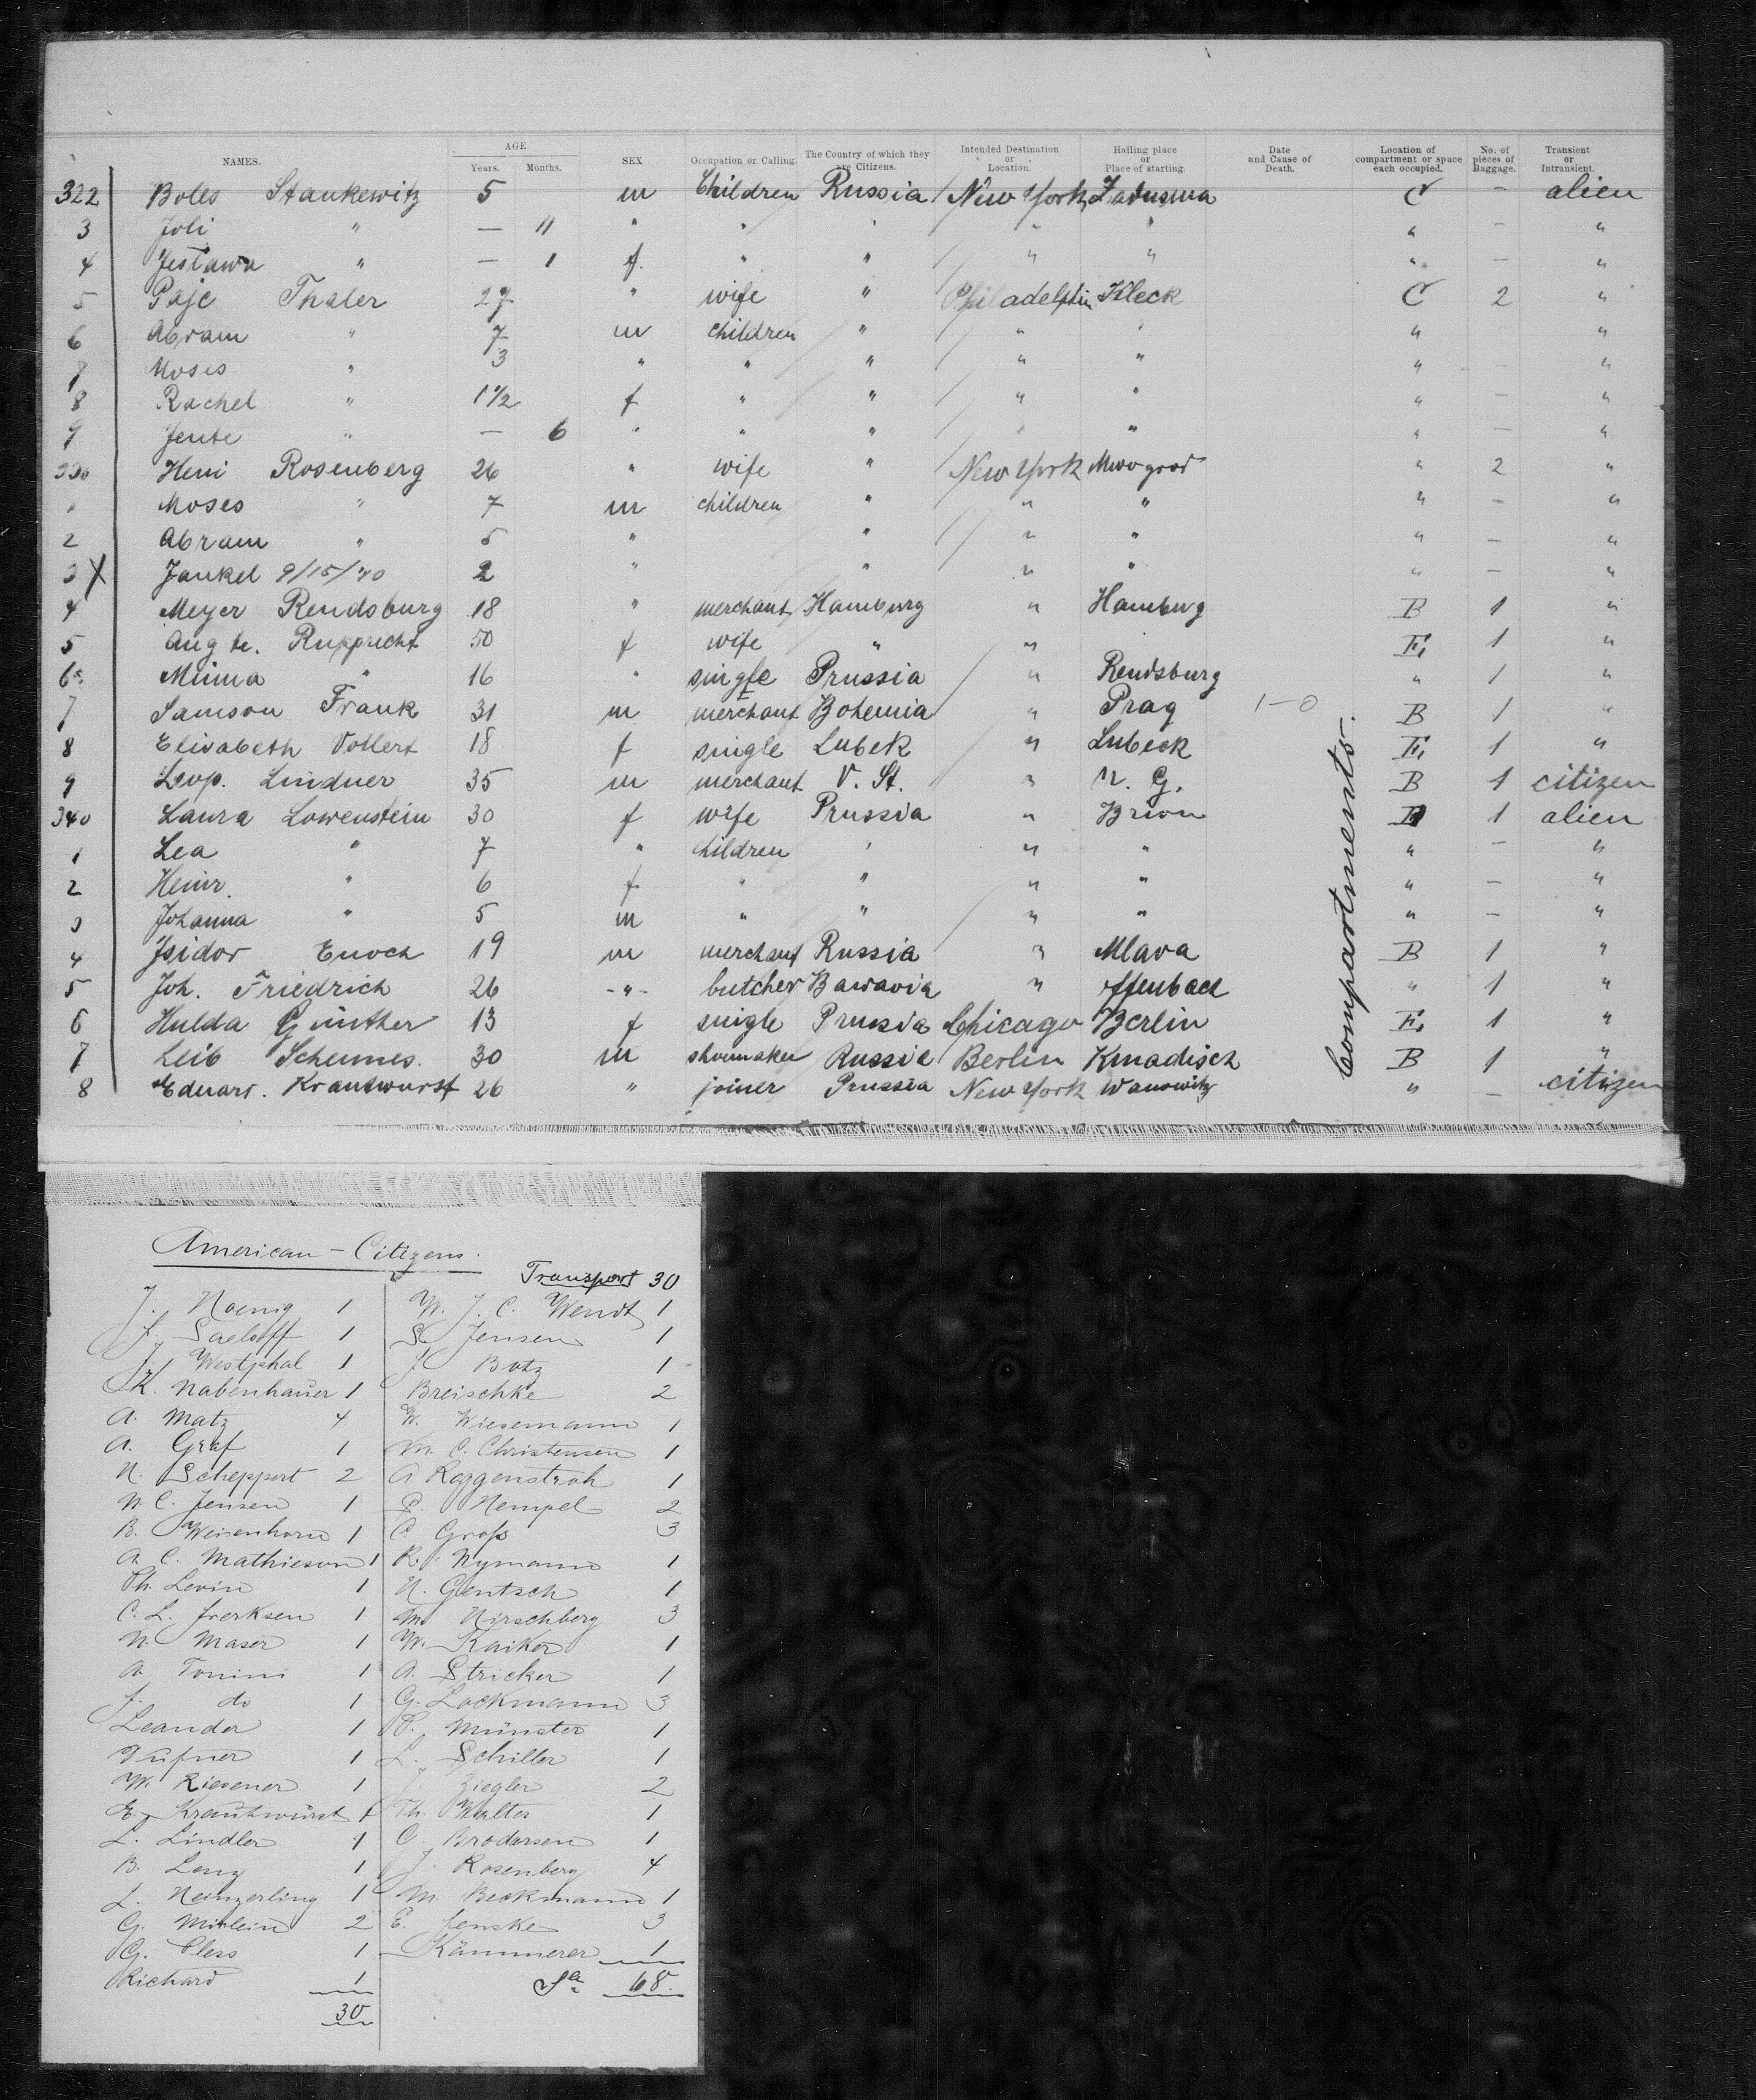 NAMES. AGE Years. Months. SEX Occupation or Calling. The Country of which they are Citizens. Intended Destination or Location. Hailing place or Place of starting. Date and Cause of Death. Location of compartment or space each occupied. No. of pieces of Baggage. Transient or Intransient.
322 Boles Stankewitz 5 m Children Russia New York C – alien
3 Joli " — 11 " " " " " " – "
4 Jestawa " — 1 f. " " " " " – "
5 Paje Thaler 27 " wife " Philadelphia Kleck C 2 "
6 Abram " 7 m children " " " " "
7 Moses " 3 " " " " " " – "
8 Rachel " 1 1/2 f " " " " " – "
9 Jente " — 6 " " " " " " – "
330 Heni Rosenberg 26 " wife " New York " 2 "
1 Moses " 7 m children " " " " – "
2 Abram " 5 " " " " " – "
3 X Jankel 9/15/20 2 " " " " " – "
4 Meyer Rendsburg 18 " merchant Hamburg " Hamburg B 1 "
5 Aug te. Rupprecht 50 f wife " " E. 1 "
6 Minna " 16 " single Prussia " Rendsburg " 1 "
7 Samson Frank 31 m merchant Bohemia " Prag 1–0 B 1 "
8 Elisabeth Vollert 18 f single Lubek " Lubeck E. 1 "
9 Leop. Lindner 35 m merchant V. St. " N. Y. B 1 citizen
340 Laura Lowenstein 30 f wife Prussia " Brion B 1 alien
1 Lea " 7 " children " " " " – "
2 Heinr. " 6 f " " " " " – "
3 Johanna " 5 m " " " " " – "
4 Isidor Enoch 19 m merchant Russia " Mlava B 1 "
5 Joh. Friedrich 26 -"- butcher Bavavia " Offenbach " 1 "
6 Hulda Günther 13 f single Prussia Chicago Berlin E. 1 "
7 Leib Schemmes. 30 m shoemaker Russia Berlin Kmadisch B 1 "
8 Eduart. Krautwurst 26 " joiner Prussia New York Wanowitz " – citizen
Compartments.
American – Citizens.
Transport 30
J. Hoenig 1 W. J. C. Wendt 1
J. Saeloff 1 S. Jensen 1
J. Westphal 1 J. Botz 1
K. Nabenhauer 1 Breischke 2
A. Matz 4 W. Wiesemann 1
A. Graf 1 M. C. Christensen 1
H. Scheppert 2 A. Roggenstroh 1
N. C. Jensen 1 P. Hempel 2
B. Weisenhorn 1 C. Groß 3
A. C. Mathieson 1 R. Nymann 1
Th. Levin 1 H. Gentsch 1
C. L. Frerksen 1 M. Hirschberg 3
N. Maser 1 W. Kaiker 1
A. Tonini 1 A. Stricker 1
J. do 1 G. Lockmann 3
Leander 1 P. Münster 1
1 L. Schiller 1
W. Riesener 1 J. Ziegler 2
E. Krautwürst 1 Th. Walter 1
L. Lindler 1 C. Brodersen 1
B. Leny 1 J. Rosenberg 4
L. Heinzerling 1 M. Beckmann 1
G. Mirlein 2 E. Jenske 3
G. Pless 1 Kämmerer 1
Richard 1 Sa 68.
30